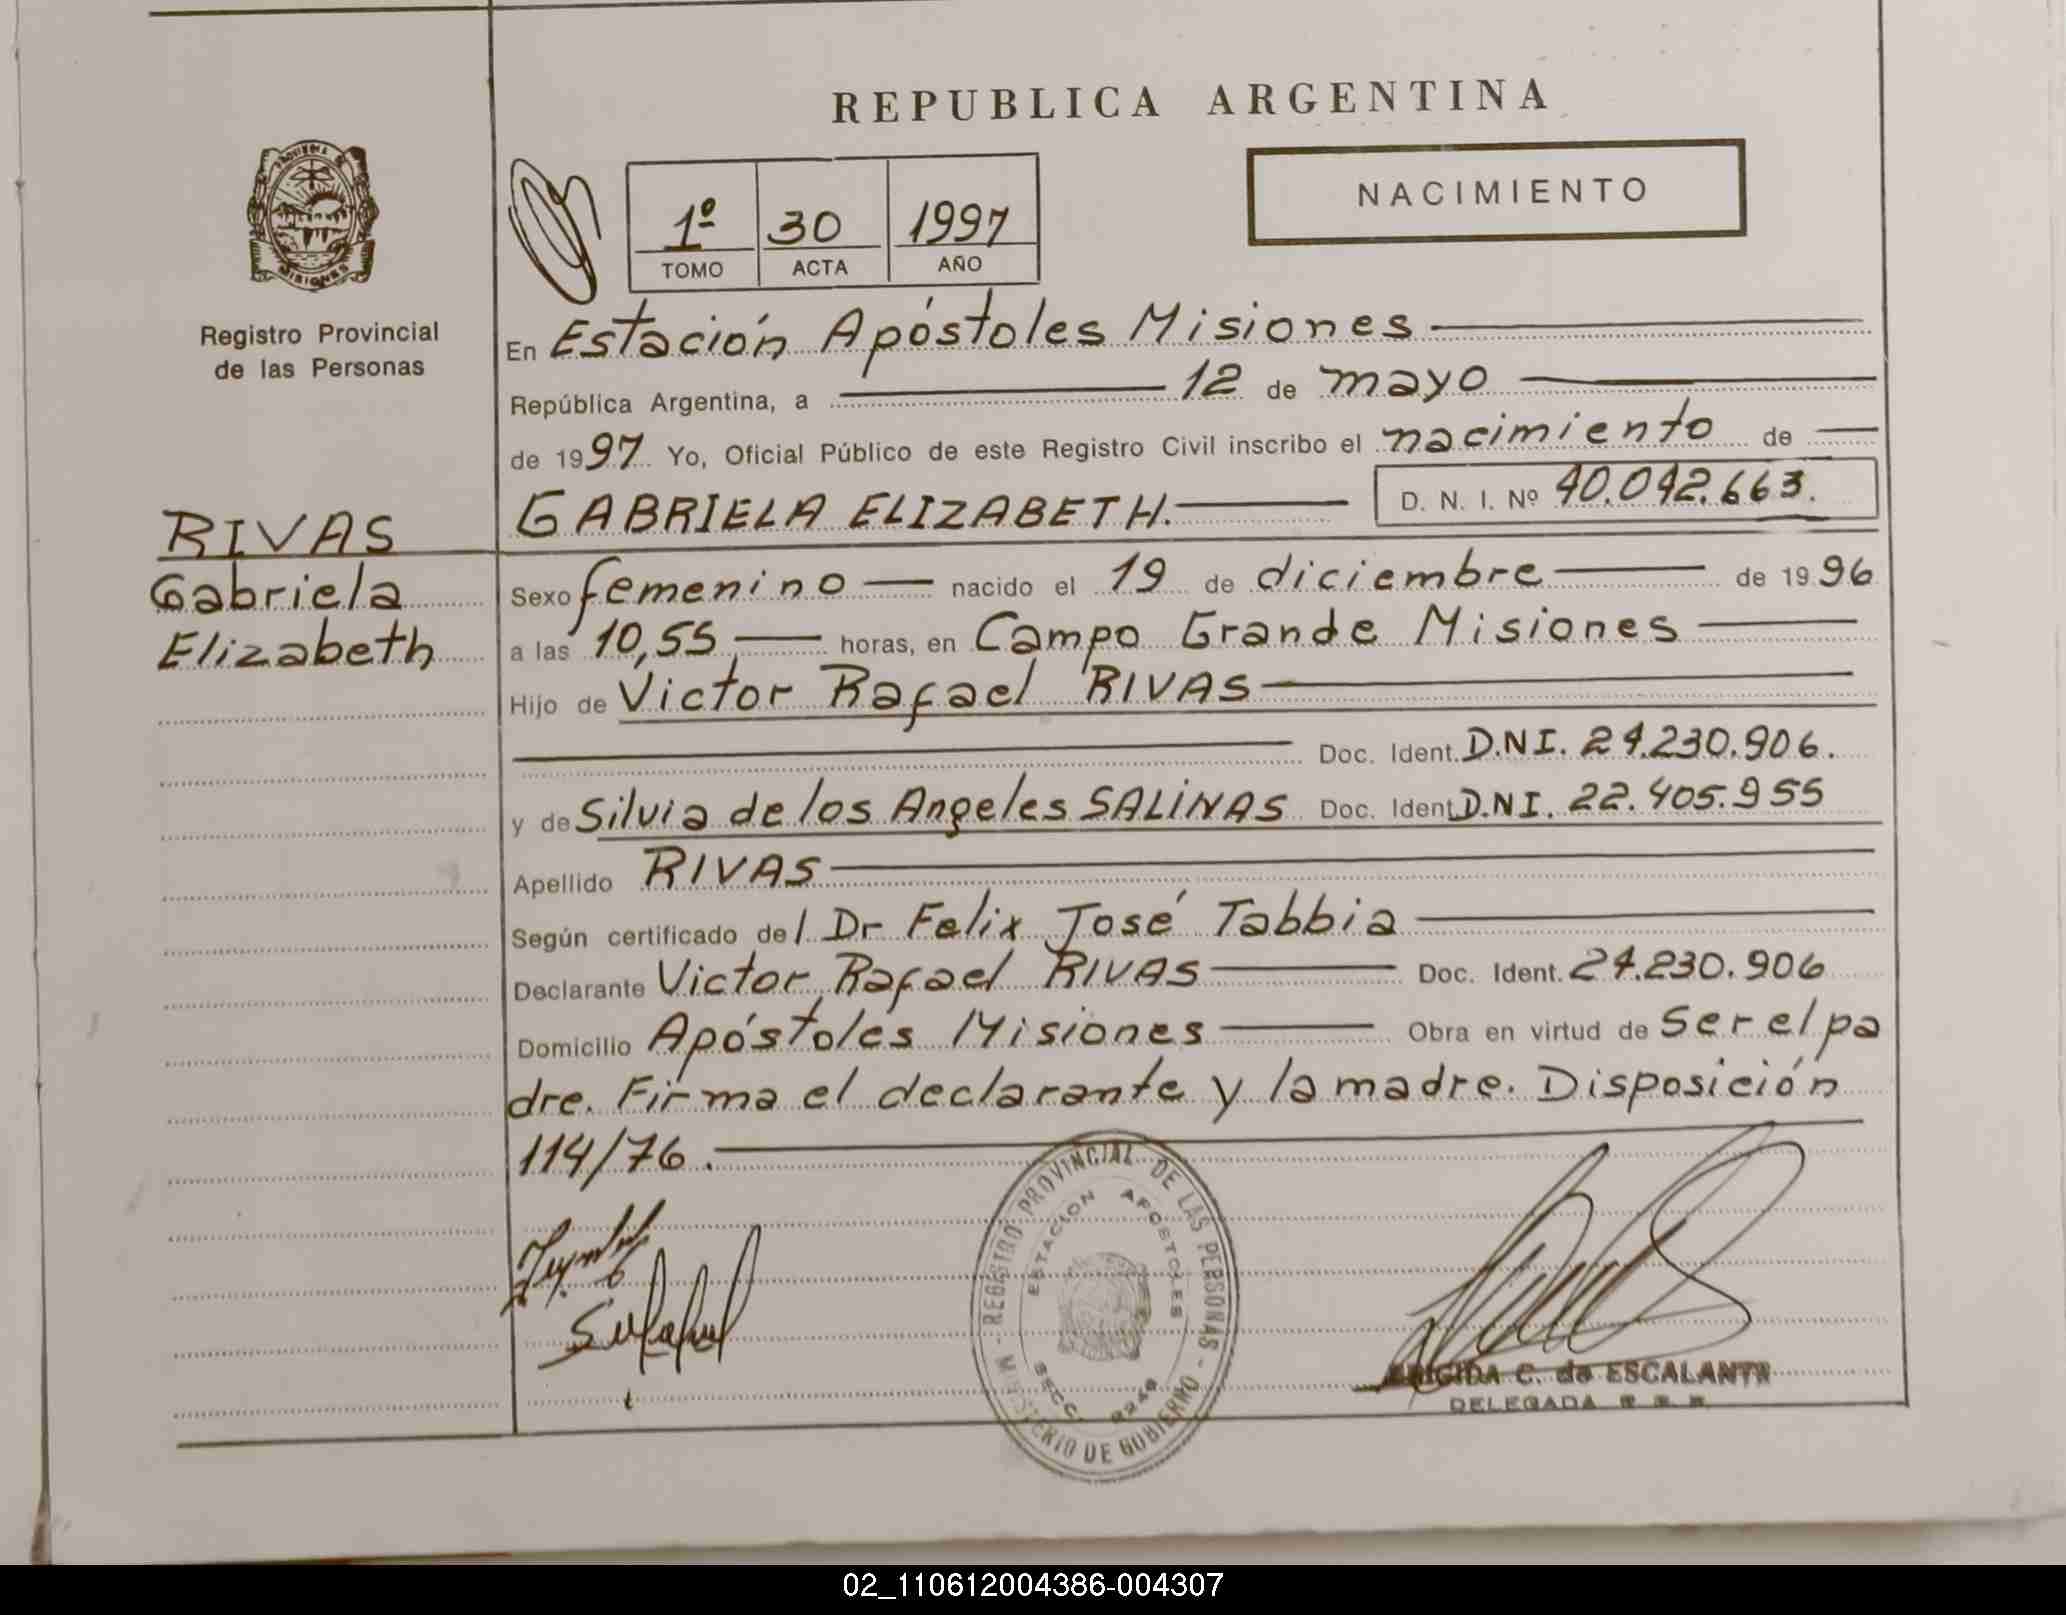 REPUBLICA ARGENTINA
NACIMIENTO
1º 30 1997
TOMO ACTA AÑO
PROVINCIA DE MISIONES
Registro Provincial
de las Personas
RIVAS
Gabriela
Elizabeth
En Estación Apóstoles Misiones
República Argentina, a 12 de mayo
de 1997 Yo, Oficial Público de este Registro Civil inscribo el nacimiento de
GABRIELA ELIZABETH. D. N. I. Nº 40.042.663.
Sexo femenino nacido el 19 de diciembre de 1996
a las 10,55 horas, en Campo Grande Misiones
Hijo de Victor Rafael RIVAS
Doc. Ident. D.N.I. 24.230.906.
y de Silvia de los Angeles SALINAS Doc. Ident. D.N.I. 22.405.955
Apellido RIVAS
Según certificado del Dr Felix José Tabbia
Declarante Victor Rafael RIVAS Doc. Ident. 24.230.906
Domicilio Apóstoles Misiones Obra en virtud de Ser el pa
dre. Firma el declarante y la madre. Disposición
114/76.
REGISTRO PROVINCIAL DE LAS PERSONAS - MINISTERIO DE GOBIERNO -
ESTACION APOSTOLES
SECC.
BRIGIDA C. de ESCALANTE
DELEGADA
02_110612004386-004307